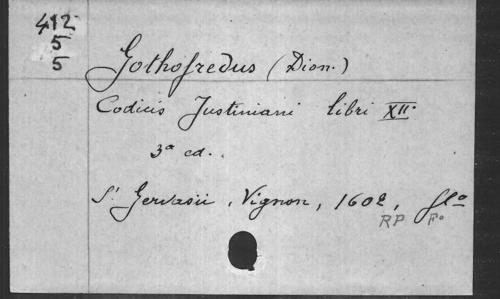 412
5
5
Gothofredus (Dion.)
Codicis Justiniani libri XII.
3ª ed.
S. Gervasii, Vignon, 1602, flº
RP Fº